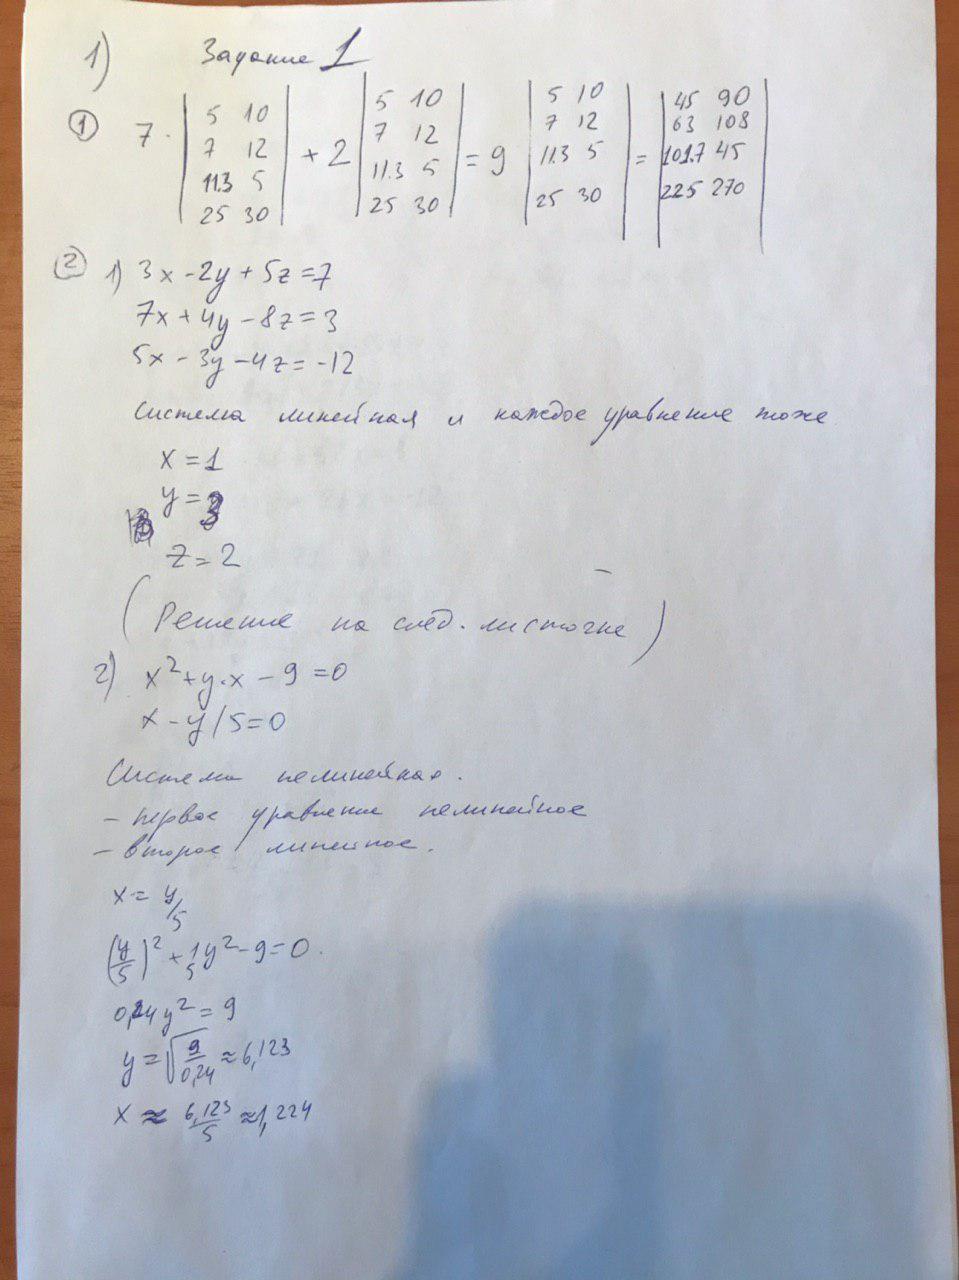 1) Задание 1
① 7 · | 5 10 | + 2 | 5 10 | = 9 | 5 10 | = | 45 90 |
| 7 12 | | 7 12 | | 7 12 | | 63 108 |
| 11.3 5 | | 11.3 5 | | 11.3 5 | | 101.7 45 |
| 25 30 | | 25 30 | | 25 30 | | 225 270 |
② 1) 3x - 2y + 5z = 7
7x + 4y - 8z = 3
5x - 3y - 4z = -12
Система линейная и каждое уравнение тоже
x = 1
y = 3
z = 2
(Решение на след. листочке)
2) x² + y·x - 9 = 0
x - y/5 = 0
Система нелинейная.
- первое уравнение нелинейное
- второе линейное.
x = y/5
(y/5)² + 1/5 y² - 9 = 0.
0,24 y² = 9
y = √(9/0,24) ≈ 6,123
x ≈ 6,123/5 ≈ 1,224